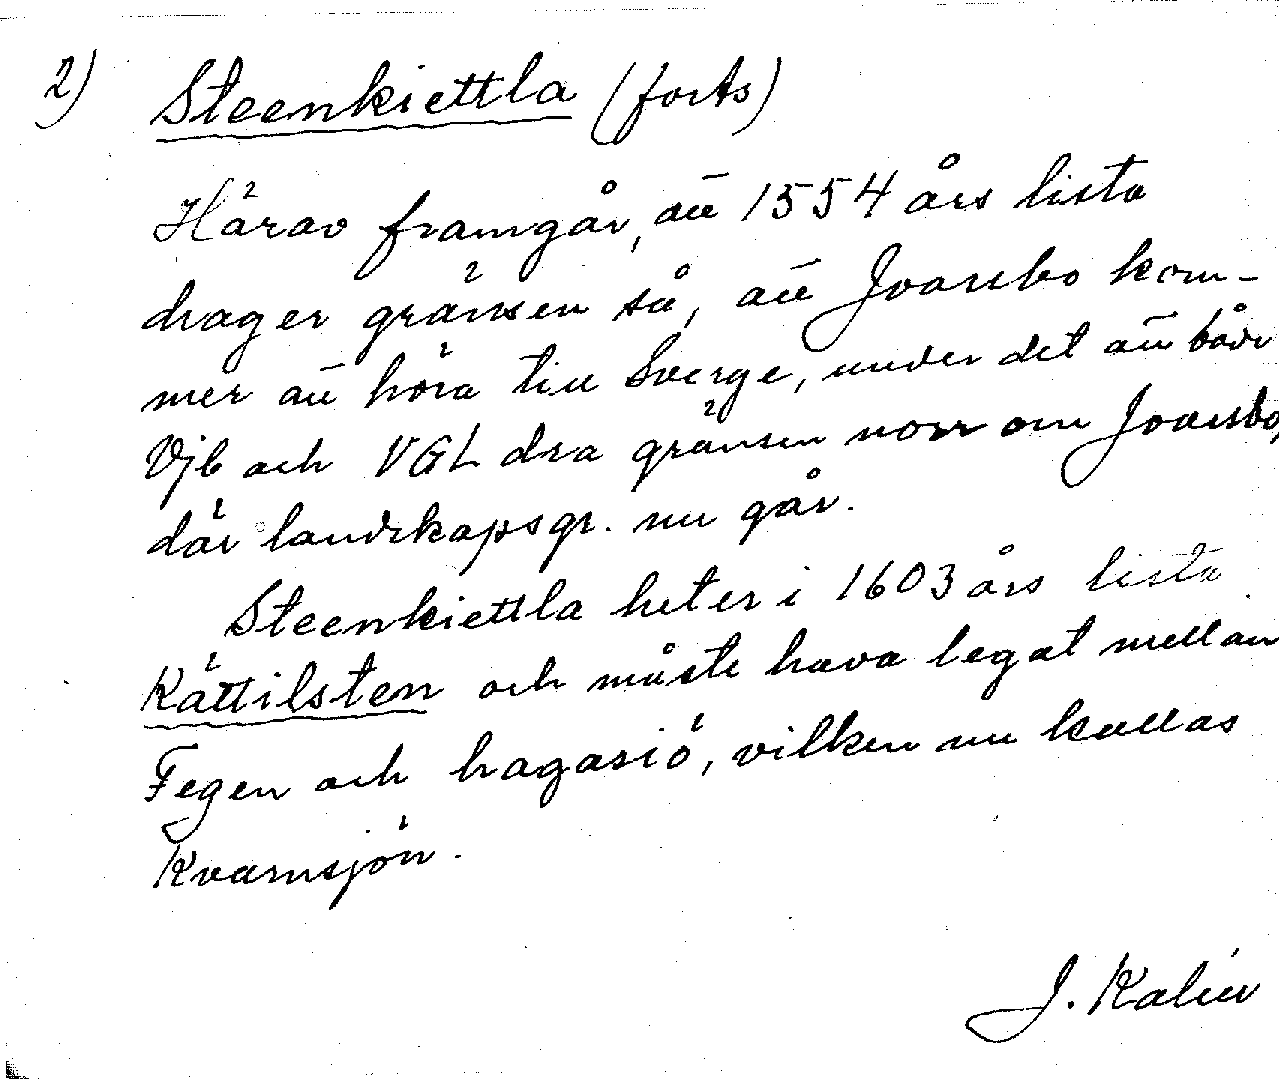 2) Steenkiettla (forts)
Härav framgår, att 1554 års lista
drager gränsen så, att Joansbo kom-
mer att höra till Sverge, under det att både
Vjb och VGL dra gränsen norr om Joansbo,
där landskapsgr. nu går.
Steenkiettla heter i 1603 års lista
Kättilsten och måste hava legat mellan
Fegen och hagasiö, vilken nu kallas
Kvarnsjön.
J. Kalén